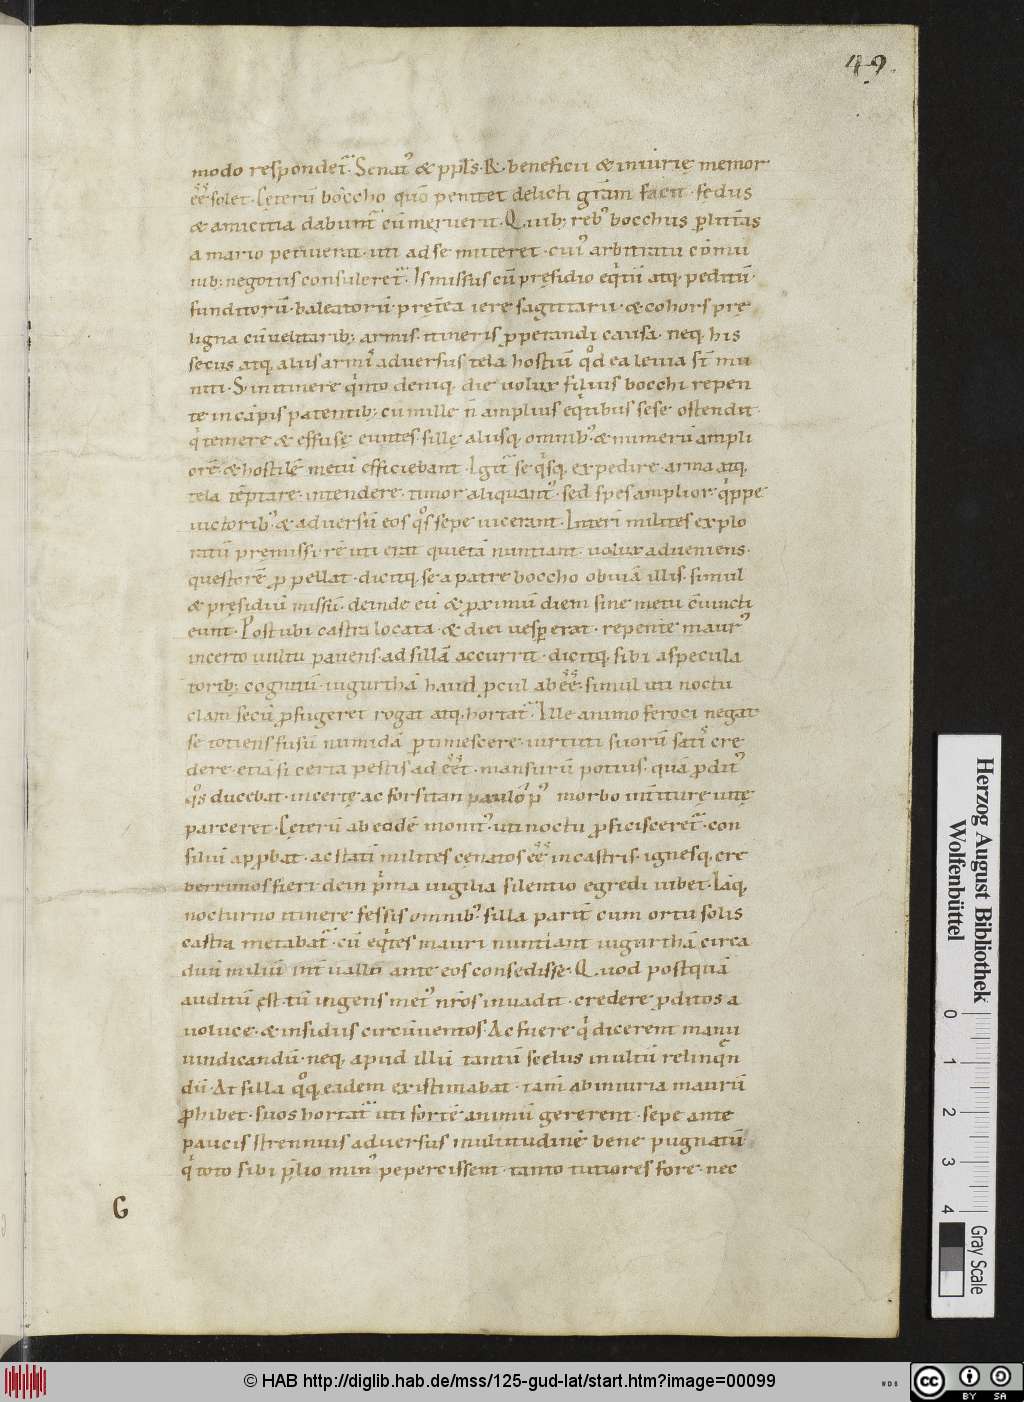 49.
modo respondet̄. Senatꝰ & ppl̄s. R. beneficii & iniurię memor
ēē solet. Cęterū boccho quō penitet delicti gr̄am facit. fędus
& amicitia dabunt̄ cū meruerit. Quib; rebꝰ bocchus p litt̄as
a mario petiverat. uti ad se mitteret. cuiꝰ arbitratu cōmu
nib; negotiis consuleret̄. Is missus cū pręsidio eq̇tū atq; peditū.
funditorū. baleatorū. pręt̄ea iere sagittarii. & cohors pre
ligna cū velitarib; armis. itineris pperandi causa. neq; his
secus atq; aliis armiˢ adversus tela hostiū qᵒd ea levia st̄ mu
niti. S; in itinere q̇nto deniq; die volux filius bocchi repen
te in cāpis patentib; cū mille n̄ amplius eq̇tibus sese ostendit.
q̇ temere & effusę euntes. sillę aliisq; omnibꝰ & numerū ampli
orē. & hostilē metū efficiebant. Igit̄ se q̇sq; expedire arma atq;
tela tēptare. intendere. timor aliquantꝰ. sed spes amplior. q̇ppe
victoribꝰ & adversū eos qᵒs sepe vicerant. Interī milites explo
ratū premissi rē uti erat quietā nuntiant. volux adveniens.
questorē ppellat. dicitq; se a patre boccho obviā illis. simul
& pręsidiū missū. deinde eū & pximum diem sine metu c̄iuncti
eunt. Post ubi castra locata. & diei vesp erat. repente maurꝰ
incerto vultu pavens. ad sillā accurrit. dicitq; sibi a specula
torib; cognitū. iugurthā haud pcul abēē. simul uti noctu
clam secū pfugeret rogat atq; hortat̄. Ille animo feroci negat
se totiens fusū numidā ptimescere. virtuti suorū satiˢ cre
dere. etiā si certa pestis adēēt. mansurū potius. quā pditꝰ
qᵒs ducebat. incertę ac forsitan paulōpꝰ morbo int̄iturę vitę
parceret. Cęterū ab eodē monitꝰ. uti noctu pficisceret̄. con
siliū appbat. ac statī milites cenatos ēē in castris. ignesq; cre
berrimos fieri. dein ṗma vigilia silentio egredi iubet. Iāq;
nocturno itinere fessis omnibꝰ. silla parit̄ cum ortu solis
castra metabat̄. cū eq̇tes mauri nuntiant iugurthā circa
duū miliū int̄vallo ante eos consedisse. Quod postquā
auditū est. tū ingens metꝰ nr̄os invadit. credere pditos a
voluce. & insidiis circūventos. Ac fuere q̇ dicerent manu
vindicandū. neq; apud illū tantū scelus inultū relinquen
dū. At silla qᵒq; eadem existimabat. tam̄ ab iniuria maurū
phibet. suos hortat̄ uti fortē animū gererent. sepe ante
paucis strennuis adversus multitudinē bene pugnatū
q̇to sibi p̄lio minꝰ pepercissent. tanto tutiores fore. nec
G
Herzog August Bibliothek
Wolfenbüttel
0 1 2 3 4
Gray Scale
© HAB http://diglib.hab.de/mss/125-gud-lat/start.htm?image=00099
WDB
cc BY SA